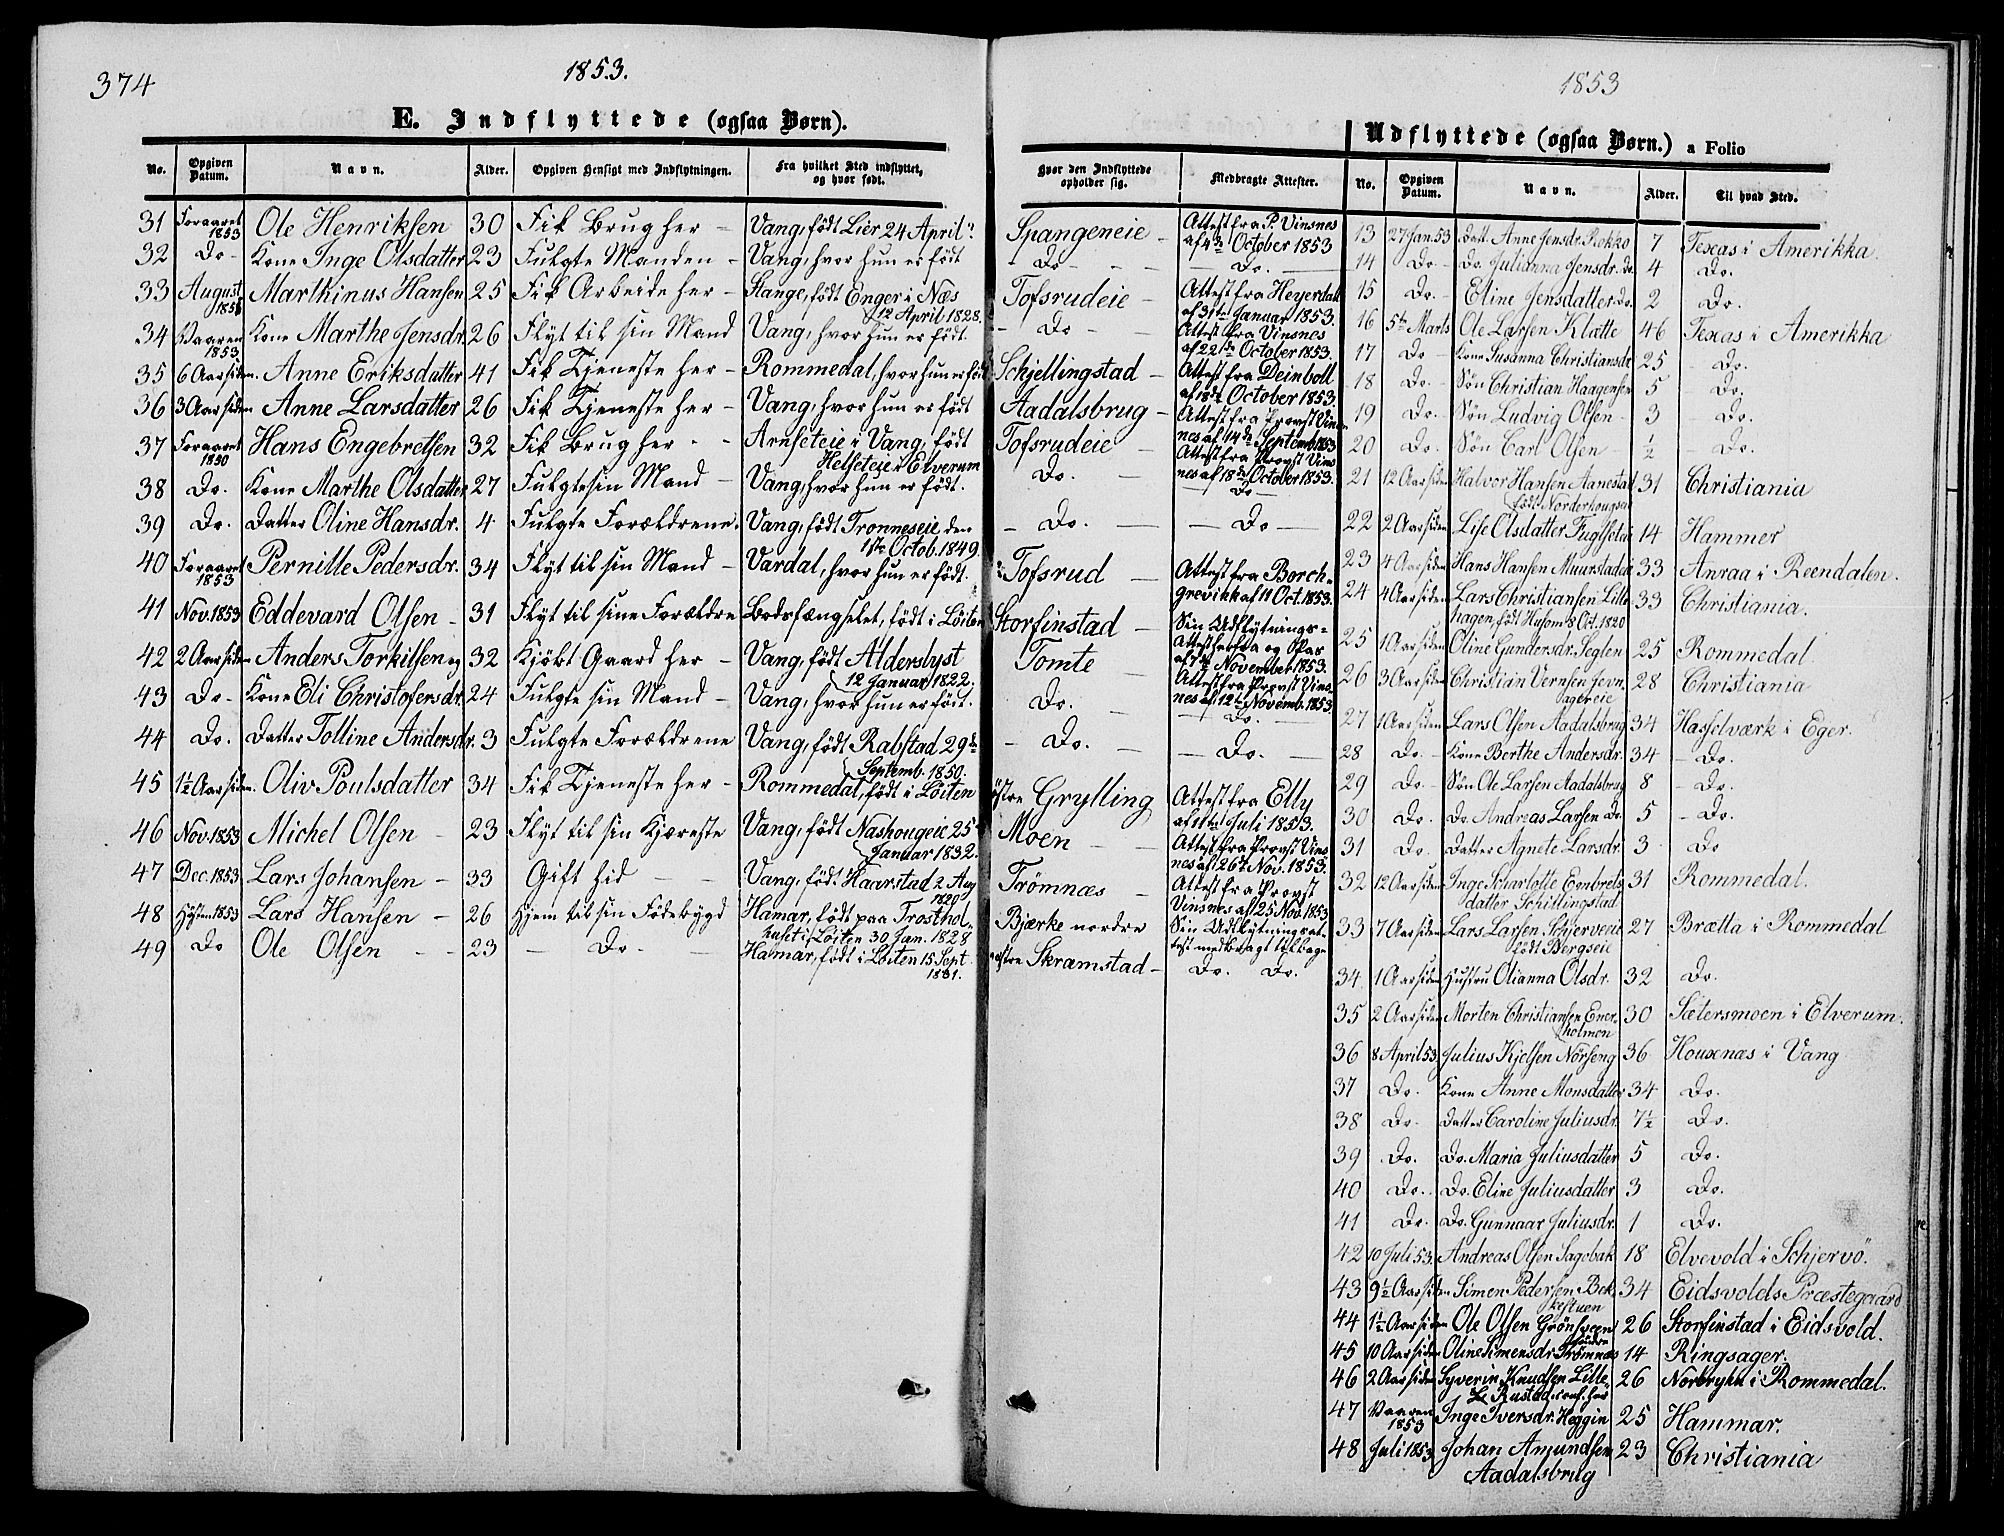 374
1853.
E. Indflyttede (ogsaa Børn).
No. Opgiven Datum. Navn. Alder. Opgiven Hensigt med Indflytningen. Fra hvilket Sted indflyttet, og hvor født. Hvor den Indflyttede opholder sig. Medbragte Attester.
31 Foraaret 1853 Ole Henriksen 30 Fik Brug her - Vang, født Lier 24 April Spangeneie - Attest fra P. Vinsnes af 4de October 1853
32 Do - Kone Inge Olsdatter 23 Fulgte Manden - Vang, hvor hun er født - Do - - Do. -
33 August Marthinus Hansen 25 Fik Arbeide her - Stange, født Enger i Næs 12 April 1828. Tofsrudeie - Attest fra Heyerdahl af 31te Januar 1853.
34 Vaaren 1853 Kone Marthe Jensdr. 26 Flyt til sin Mand Vang, hvor hun er født. - Do - - Attest fra Vinsnes af 22de October 1853.
35 6 Aar siden. Anne Eriksdatter 41 Fik Tjeneste her - Rommedal, hvor hun er født Schjellingstad - Attest fra Deinboll af 18de October 1853.
36 3 Aar siden Anne Larsdatter 26 Fik Tjeneste her - Vang, hvor hun er født Aadalsbrug - Attest fra Provst Vinsnes af 14de Septemb. 1853
37 Foraaret 1850 Hans Engebretsen 32 Fik Brug her - - Arnseteie i Vang, født Helseteie i Elverum Tofsrudeie - Attest fra Provst Vinsnes af 18de October 1853.
38 Do. Kone Marthe Olsdatter 27 Fulgte sin Mand - Vang, hvor hun er født. Do. - Do -
39 Do. Datter Oline Hansdr. 4 Fulgte Forældrene. Vang, født Tronneseie den 1ste Octob. 1849 - Do. - - Do -
40 Foraaret 1853 Pernille Pedersdr. 34 Flyt til sin Mand - Vardal, hvor hun er født. Tofsrud - Attest fra Borchgrevink af 11 Oct. 1853.
41 Nov. 1853 Eddevard Olsen - 31 Flyt til sine Forældre Bodsfængselet, født i Löiten Storfinstad - Sin Udflytnings-Attest herfra og Pas af 7de November 1853.
42 2 Aar siden Anders Torkilsen og 32 Kjöbt Gaard her - Vang, født Alderslyst 12 Januar 1822. Tomte - Attest fra Provst Vinsnes af 12te Novemb. 1853
43 Do - Kone Eli Christofersdr. 24 Fulgte sin Mand - Vang, hvor hun er født. Do. - - Do. -
44 Do. Datter Tolline Andersdr. 3 Fulgte Forældrene Vang, født Rabstad 29de Septemb. 1850. - Do. - - Do. -
45 1½ Aar siden. Oliv Poulsdatter 34 Fik Tjeneste her - Rommedal, født i Löiten östre Grylling Attest fra Elly af 11te Juli 1853.
46 Nov. 1853 Michel Olsen - 23 Flyt til sin Kjæreste Vang, født Nashougeie 25 Januar 1832. Moen - - Attest fra Provst Vinsnes af 26de Nov. 1853.
47 Dec. 1853 Lars Johansen - 33 Gift hid - - Vang, født Haarstad 2 Aug 1820 Trömnæs - Attest fra Provst Vinsnes af 25 Nov. 1853
48 Hösten 1853 Lars Hansen - 26 Hjem til sin Fødebygd Hamar, født paa Trosthol huset i Löiten 30 Jan. 1828 Bjærke nordre Sin Udflytningsattest medbragt tilbage
49 Do Ole Olsen - - 23 - Do - - Hamar, født i Löiten 15 Sept. 1831. östre Skramstad - Do. Do.
1853
Udflyttede (ogsaa Børn.) a Folio
No. Opgiven Datum. Navn. Alder. Til hvad Sted.
13 27 Jan. 53 Datt. Anne Jensdr. Rokko 7 Texas i Amerikka.
14 Do - Do. Julianna Jensdr. Do 4 Do.
15 Do. - Eline Jensdatter Do. 2 Do.
16 5te Marts Ole Larsen Klatte 46 Texas i Amerikka
17 Do - Kone Susanna Christiansdr 25 - Do.
18 Do. - Søn Christian Haagensen 5 - Do.
19 Do. - Søn Ludvig Olsen - 3 - Do.
20 Do. - Søn Carl Olsen ½ - Do.
21 12 Aar siden Halvor Hansen Aanestad født Norderhougsei 31 Christiania
22 2 Aar siden Lise Olsdatter Fuglsetei 14 Hammer
23 4 Aar siden Hans Hansen Muurstadei 33 Anraa i Reendalen.
24 4 Aar siden Lars Christiansen Lillehagen, født Husom 8 Oct. 1820 33 Christiania.
25 1 Aar siden Oline Gundersdr. Seglen 25 Rommedal
26 3 Aar siden Christian Vernsen Jevnsagereie 28 Christiania
27 1 Aar siden Lars Olsen Aadalsbrug 34 Hasselværk i Eger.
28 Do. - Kone Berthe Andersdr. 34 - Do.
29 Do. - Søn Ole Larsen Aadalsbrug 8 - Do.
30 Do. Do. Andreas Larsen Do. 5 - Do.
31 Do. Datter Agnete Larsdr. 3 Do
32 12 Aar siden Inge Scharlotte Embretsdatter Schillingstad 31 Rommedal.
33 7 Aar siden Lars Larsen Schjerven født Bergseie 27 Brætta i Rommedal
34 1 Aar siden Hustru Olianna Olsdr. 32 Do.
35 2 Aar siden Morten Christiansen Enerholmen 30 Sætersmoen i Elverum.
36 8 April 53 Julius Kjelsen Nörseng 36 Houxnæs i Vang
37 Do. Kone Anne Monsdatter 34 Do.
38 Do. Datter Caroline Juliusdr. 7½ Do.
39 Do. Do. Maria Juliusdatter 5 Do.
40 Do. Do. Eline Juliusdatter 3 Do.
41 Do. Do. Gunnaar Juliusdr. 1 Do.
42 10 Juli 53. Andreas Olsen Sagbak 18 Elvevold i Schjervö.
43 9½ Aar siden Simen Pedersen Bekkestuen 34 Eidsvolds Præstegaard
44 1½ Aar siden Ole Olsen Grönsveen 26 Storfinstad i Eidsvold.
45 10 Aar siden Oline Simensdr. Trömnæs söndre 14 Ringsager.
46 2 Aar siden Syverin Knudsen Lille Rustad, conf. her 26 Norbryn i Rommedal.
47 Vaaren 1853 Inge Iversdr. Heggin 25 Hammar.
48 Juli 1853 Johan Amundsen Aadalsbrug 23 Christiania